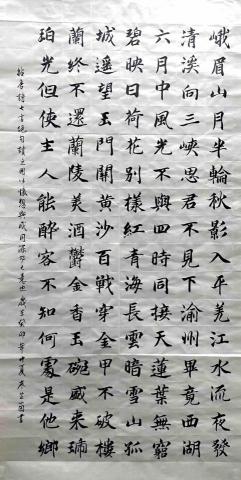 峨眉山月半輪秋影入平羌江水流夜發
清溪向三峽思君不見下渝州畢竟西湖
六月中風光不與四時同接天蓮葉無窮
碧映日荷花別樣紅青海長雲暗雪山孤
城遙望玉門關黃沙百戰穿金甲不破樓
蘭終不還蘭陵美酒鬱金香玉碗盛來琥
珀光但使主人能醉客不知何處是他鄉
唐詩七言絕句